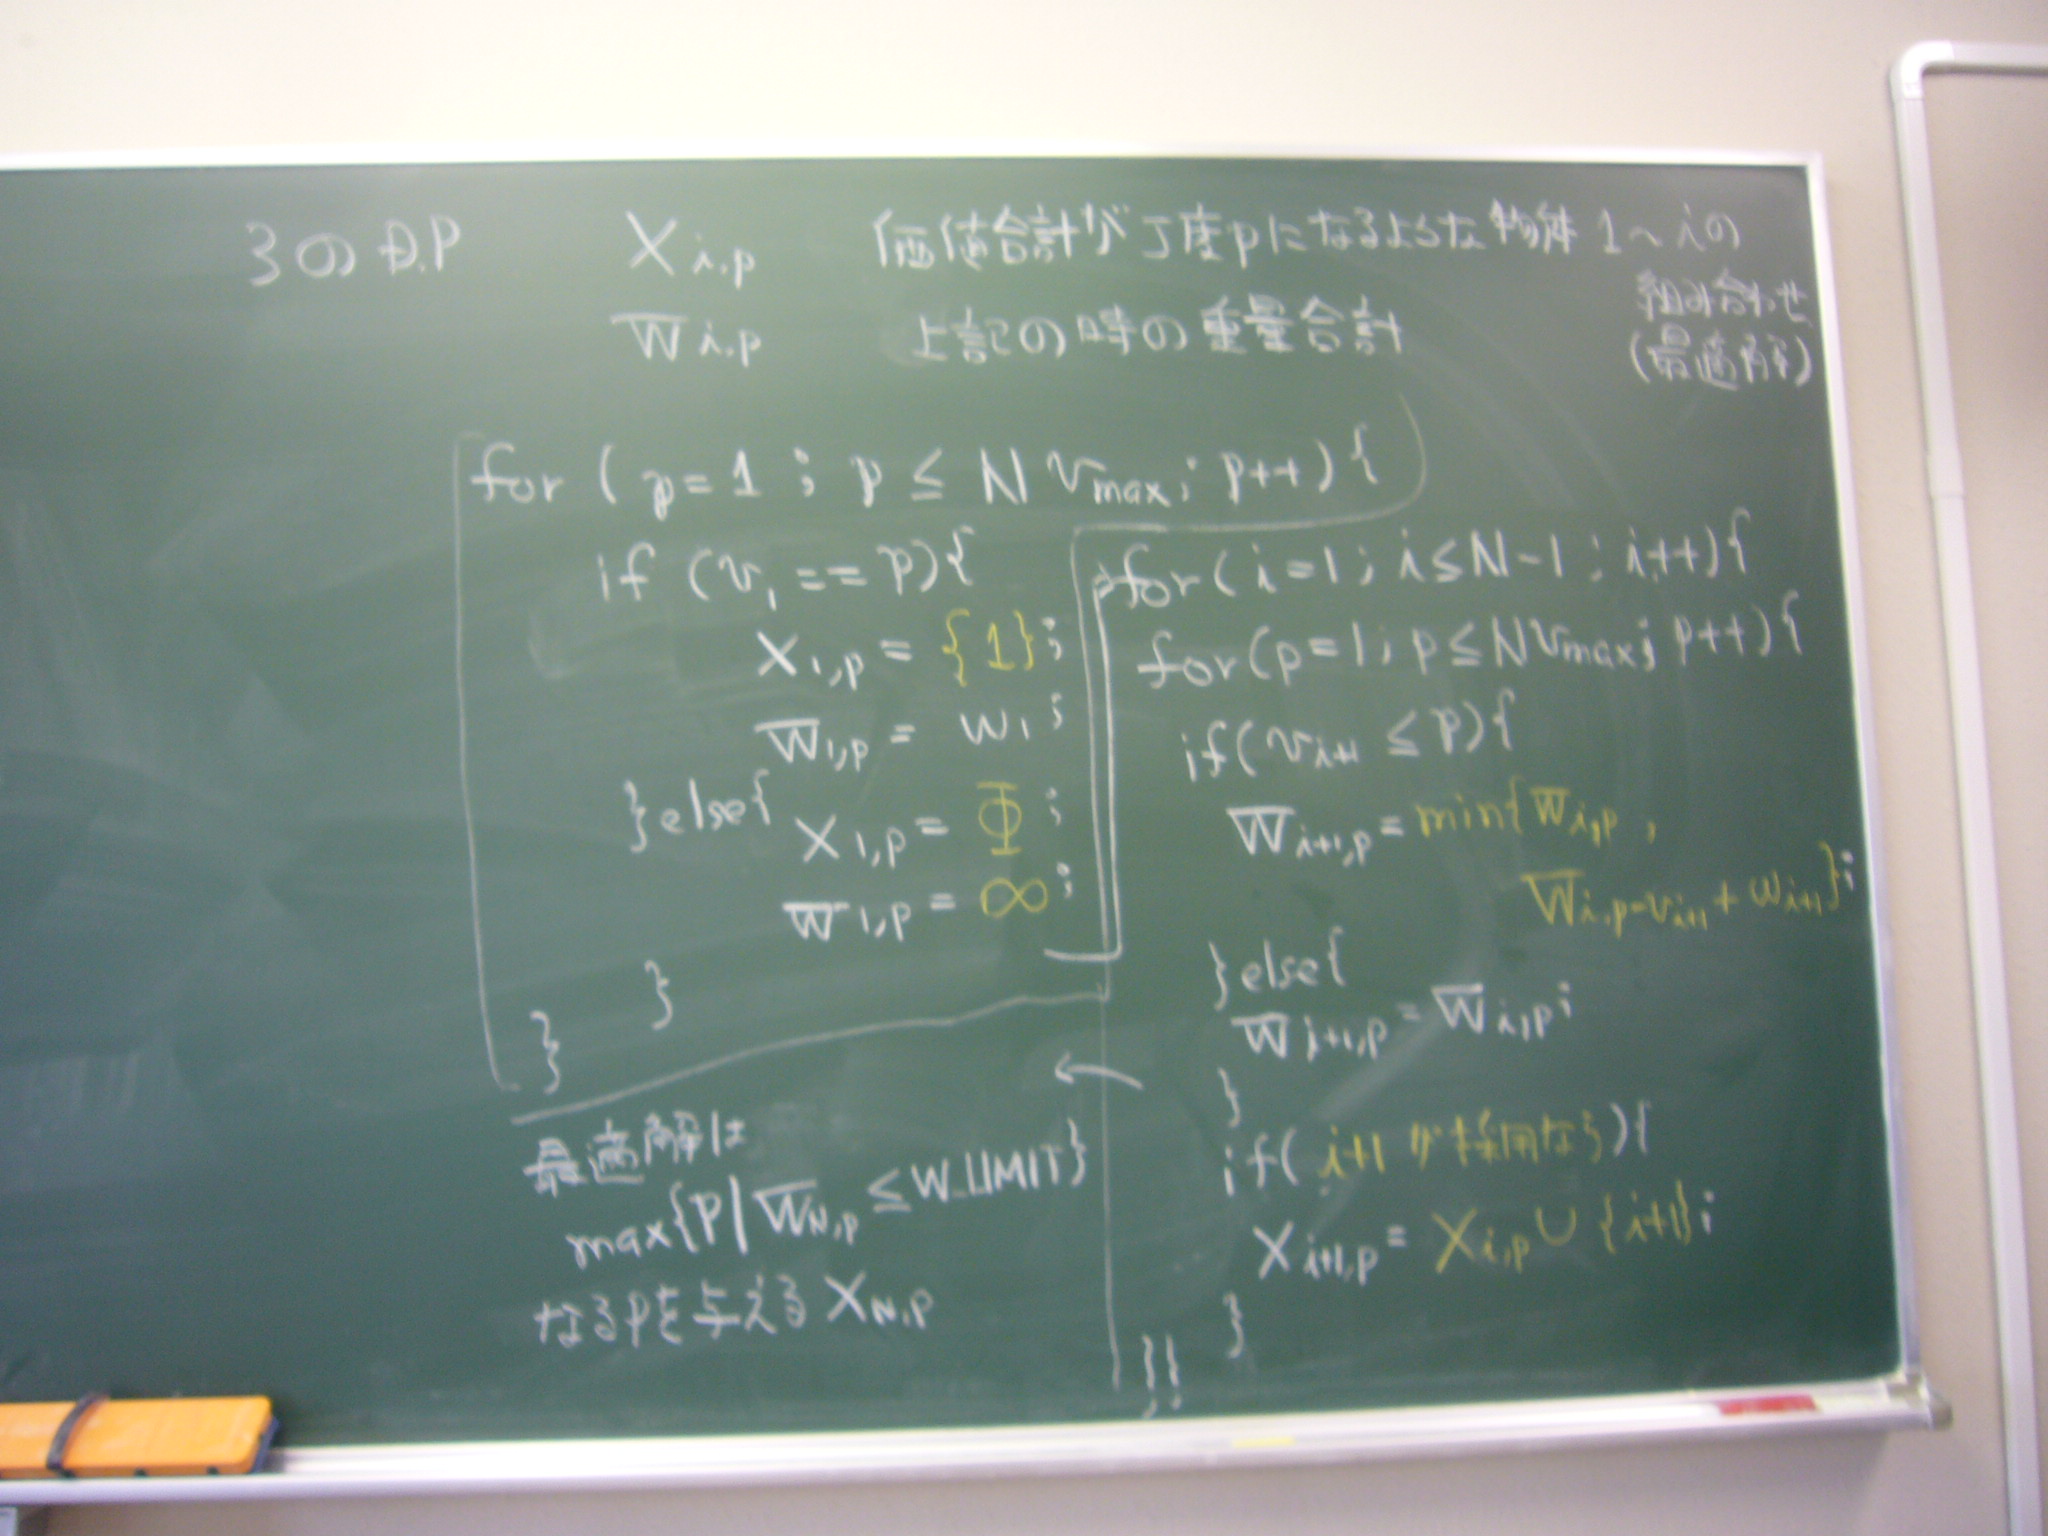 3のD.P X i,p 価値合計が丁度pになるような物体1〜iの
組み合わせ
(最適解)
W i,p 上記の時の重量合計
for ( p=1 ; p ≤ N vmax ; p++ ) {
if (v1 == p) {
X1,p = {1} ;
W1,p = w1 ;
} else {
X1,p = Φ ;
W1,p = ∞ ;
}
}
for ( i=1 ; i ≤ N-1 ; i++) {
for (p=1 ; p ≤ N vmax ; p++) {
if (vi+1 ≤ p) {
Wi+1,p = min{Wi,p ,
Wi,p-vi+1 + wi+1} ;
} else {
Wi+1,p = Wi,p ;
}
if( i+1 が採用なら) {
Xi+1,p = Xi,p ∪ {i+1} ;
}
}}
最適解は
max{P | WN,p ≤ W_LIMIT}
なるPを与える XN,p